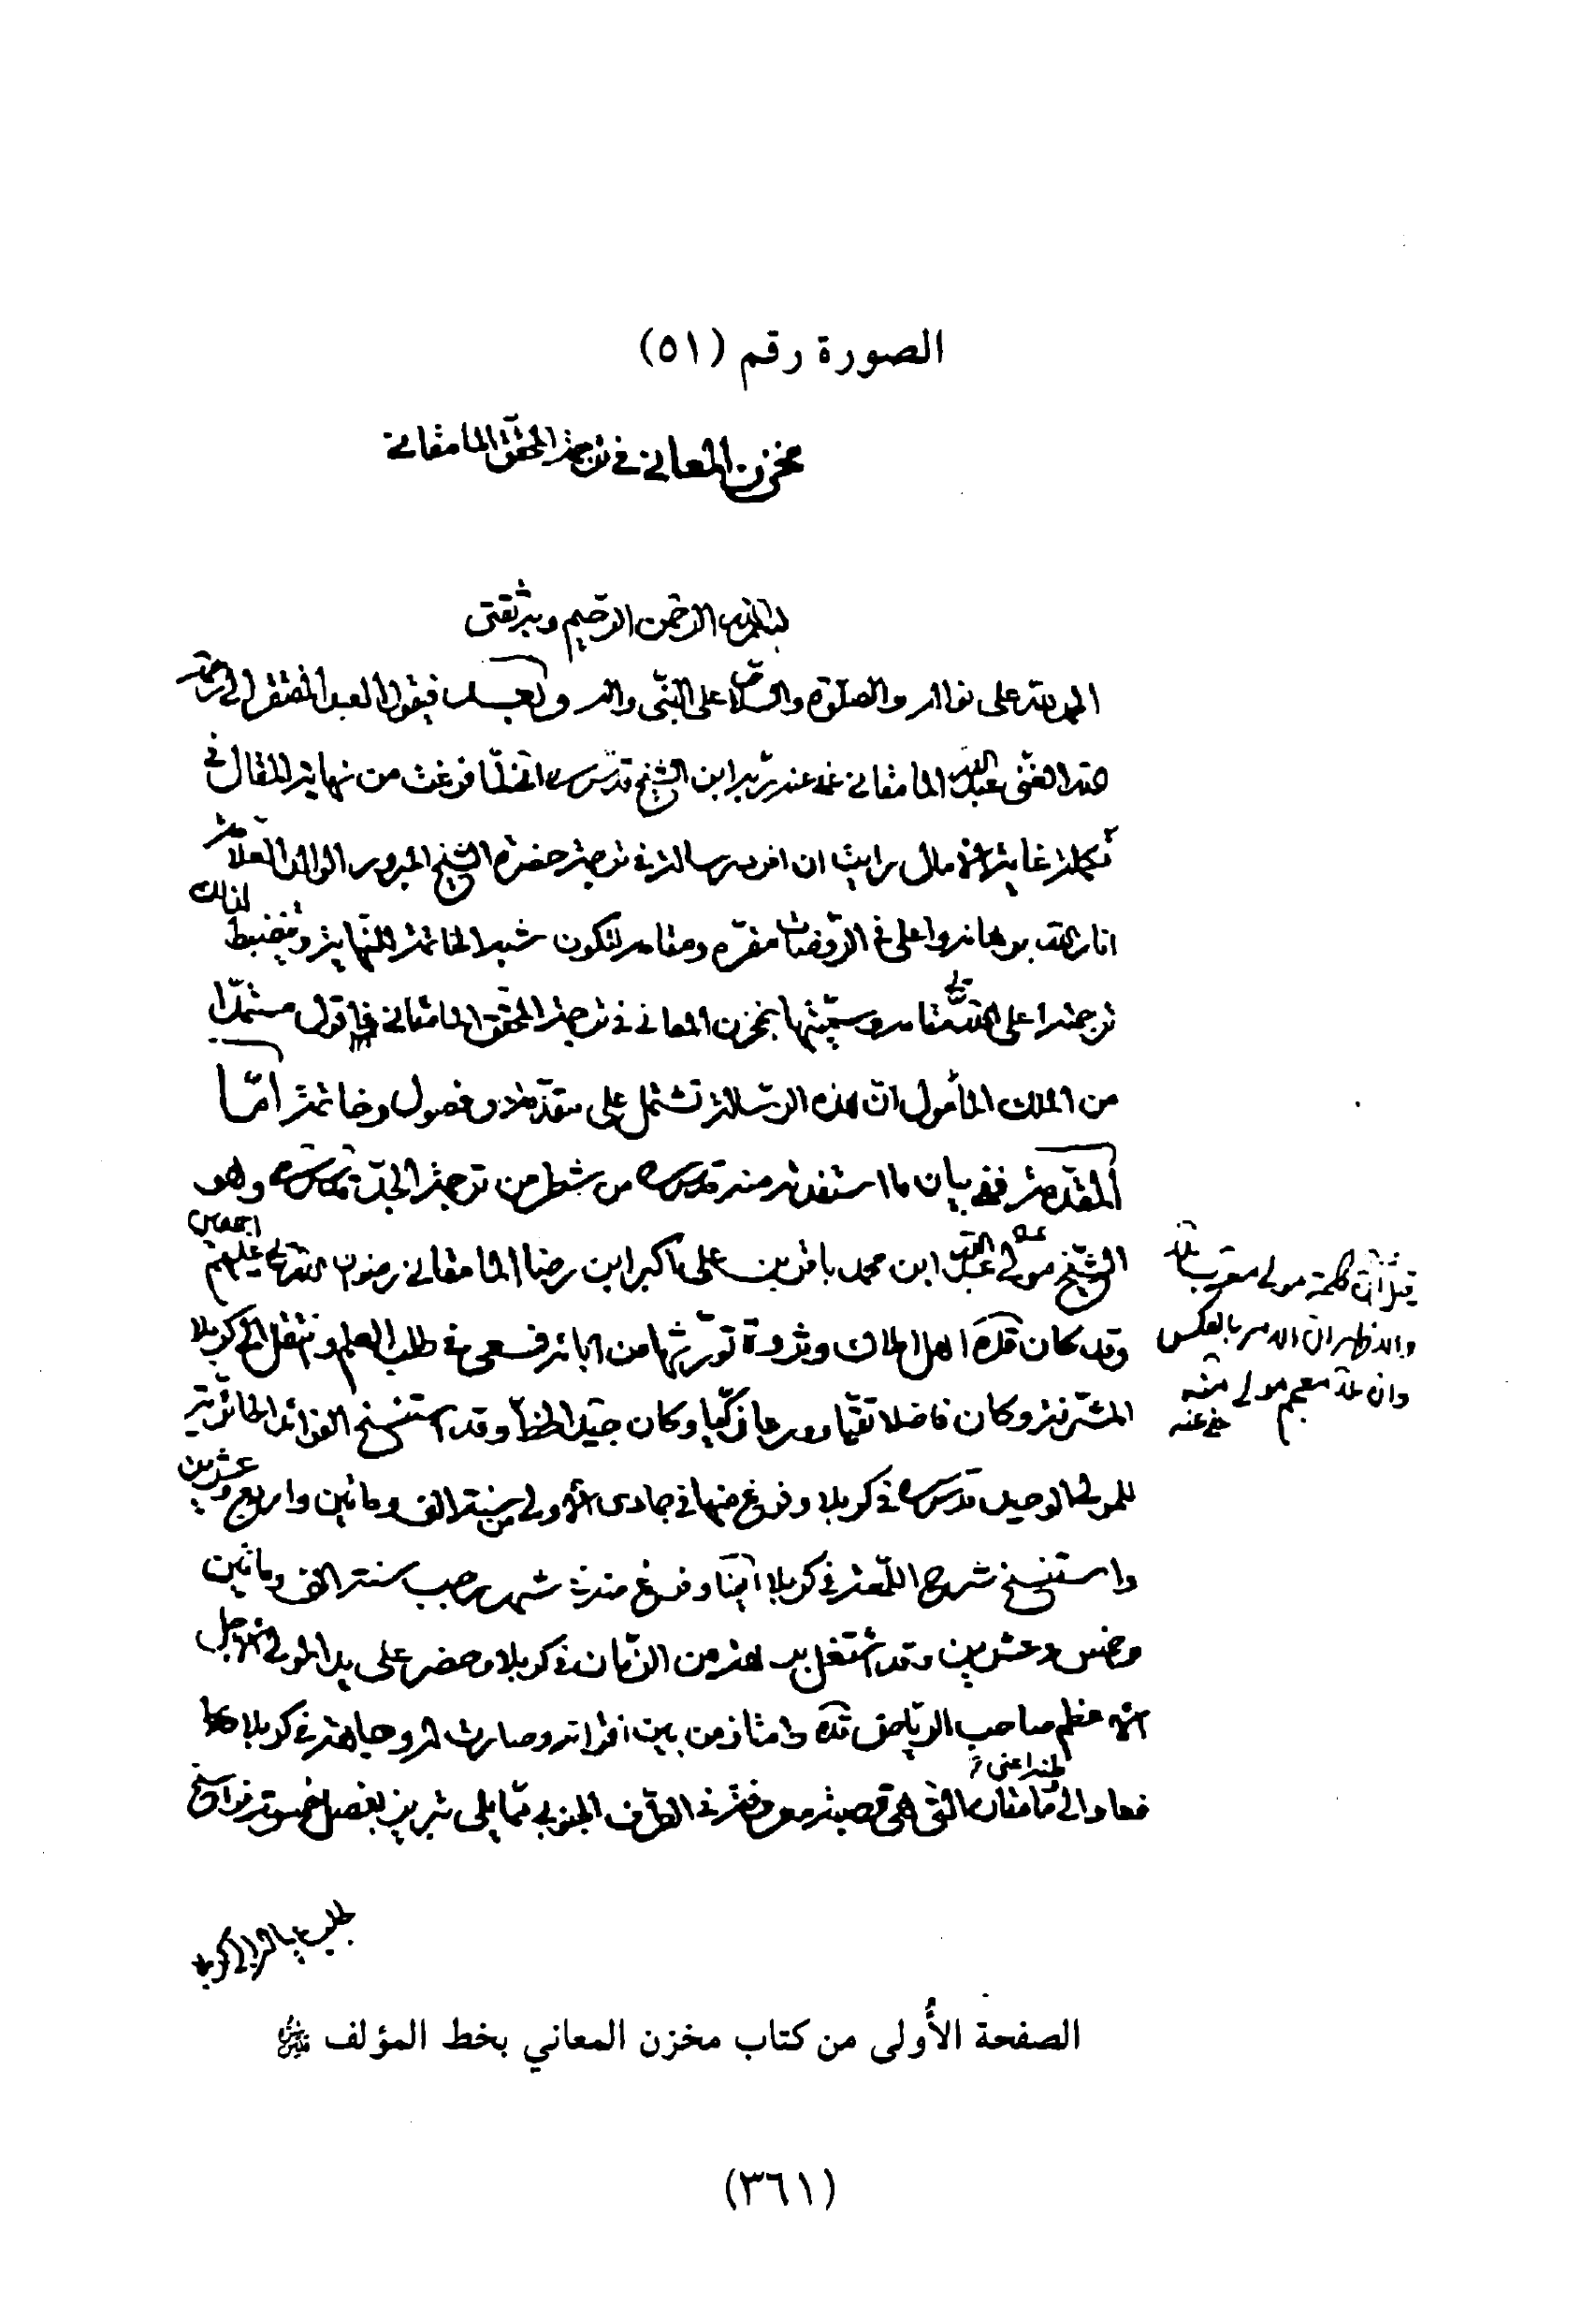 الصورة رقم (٥١)
مخزن المعاني في ترجمة المحقق المامقاني
بسم الله الرحمن الرحيم وبه ثقتي
الحمد لله على نواله والصلوة والسلام على النبي واله وبعد فيقول العبد المفتقر الى رحمة
الله الغني عبد الله المامقاني عفى عنه ربه ابن الشيخ قدس سره اني لما فرغت من نهاية المقال في
تكملة غاية الامال رايت ان افرد رسالة في ترجمة حضرة الشيخ المبرور الوالد العلامة
انار الله برهانه واعلى في الروضات مقره ومقامه لتكون شبه الخاتمة للنهاية وتنضبط لذلك
ترجمته اعلى الله تعالى مقامه وسميتها بمخزن المعاني في ترجمة المحقق المامقاني فاقول مستمدا
من الملك المأمول ان هذه الرسالة تشتمل على مقدمة وفصول وخاتمة اما
المقدمة ففي بيان ما استفدته منه قدس سره من شطر من ترجمة الجد قدس سره وهو
الشيخ مولى عبد الله ابن محمد باقر بن على اكبر ابن رضا المامقاني رضوان الله تعالى عليهم اجمعين
وقد كان قده اهل املاك وثروة تورثها من ابائه فسعى في طلب العلم وانتقل الى كربلا
المشرفة وكان فاضلا تقيا ورعا زكيا وكان جيد الخط وقد استنسخ الفوائد الحائرية
للمولى الوحيد قدس سره في كربلا وفرغ منها في جمادى الاولى من سنة الف ومائتين واربع وعشرين
واستنسخ شرح اللمعة في كربلا ايضا وفرغ منه في شهر رجب سنة الف ومائتين
وخمس وعشرين وقد اشتغل برهة من الزمان في كربلا وحضر على يد المولى الاجل
الاعظم صاحب الرياض قده وامتاز من بين اقرانه وصارت له وجاهة في كربلا
فعاد الى مامقان التي هي قصبة معروفة في الطرف الجنوبي مما يلي تبريز بفصل خمسة فراسخ
قيل ان كلمة مولى معرب ملا
والظاهر ان الامر بالعكس
وان ملا معجم مولى منه
عفي عنه
الصفحة الأولى من كتاب مخزن المعاني بخط المؤلف
(٣٦١)